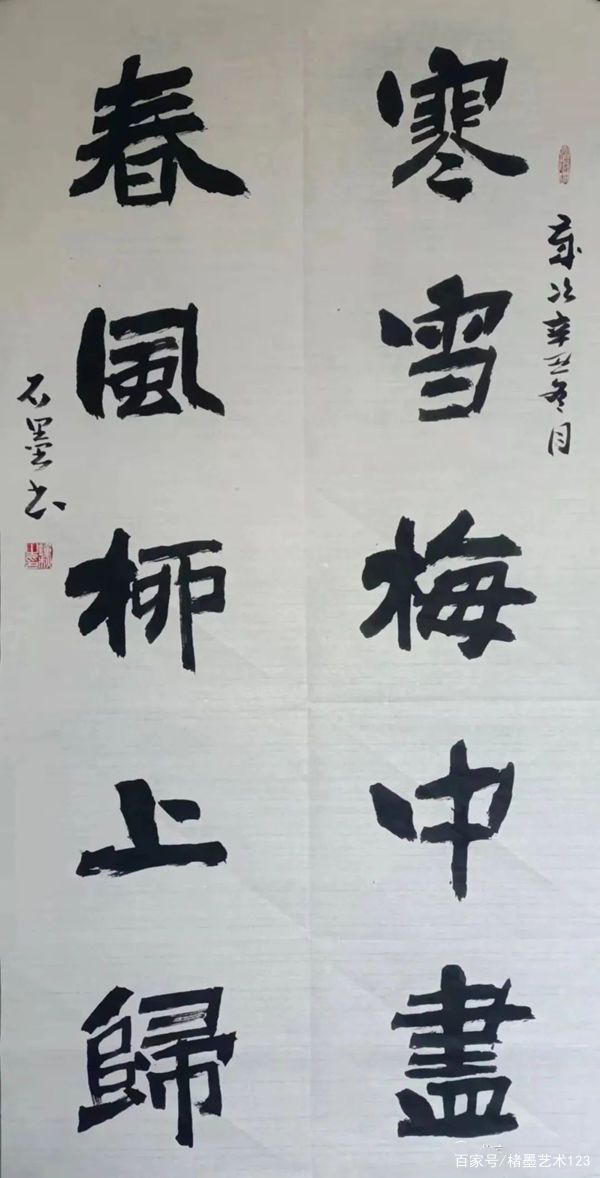 歲次辛丑冬月
寒雪梅中盡
春風柳上歸
石墨书
百家号/楮墨艺术123